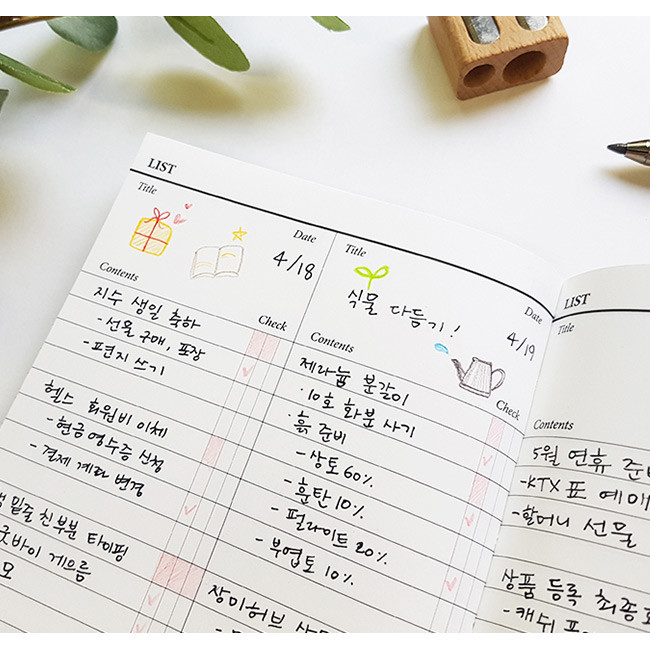 LIST
Title
Date
4/18
Contents
Check
지수 생일 축하
- 선물 구매, 포장
- 편지 쓰기
헬스 회원비 이체
- 현금영수증 신청
- 결제 계좌 변경
밑줄 친 부분 타이핑
굿바이 게으름
모
Title
식물 다듬기!
Date
4/19
Contents
Check
제라늄 분갈이
· 10호 화분 사기
· 흙 준비
- 상토 60%
- 훈탄 10%
- 펄라이트 20%
- 부엽토 10%
장미허브
LIST
Title
Contents
5월 연휴 준비
- KTX 표 예매
- 할머니 선물
상품 등록 최종
- 캐쉬